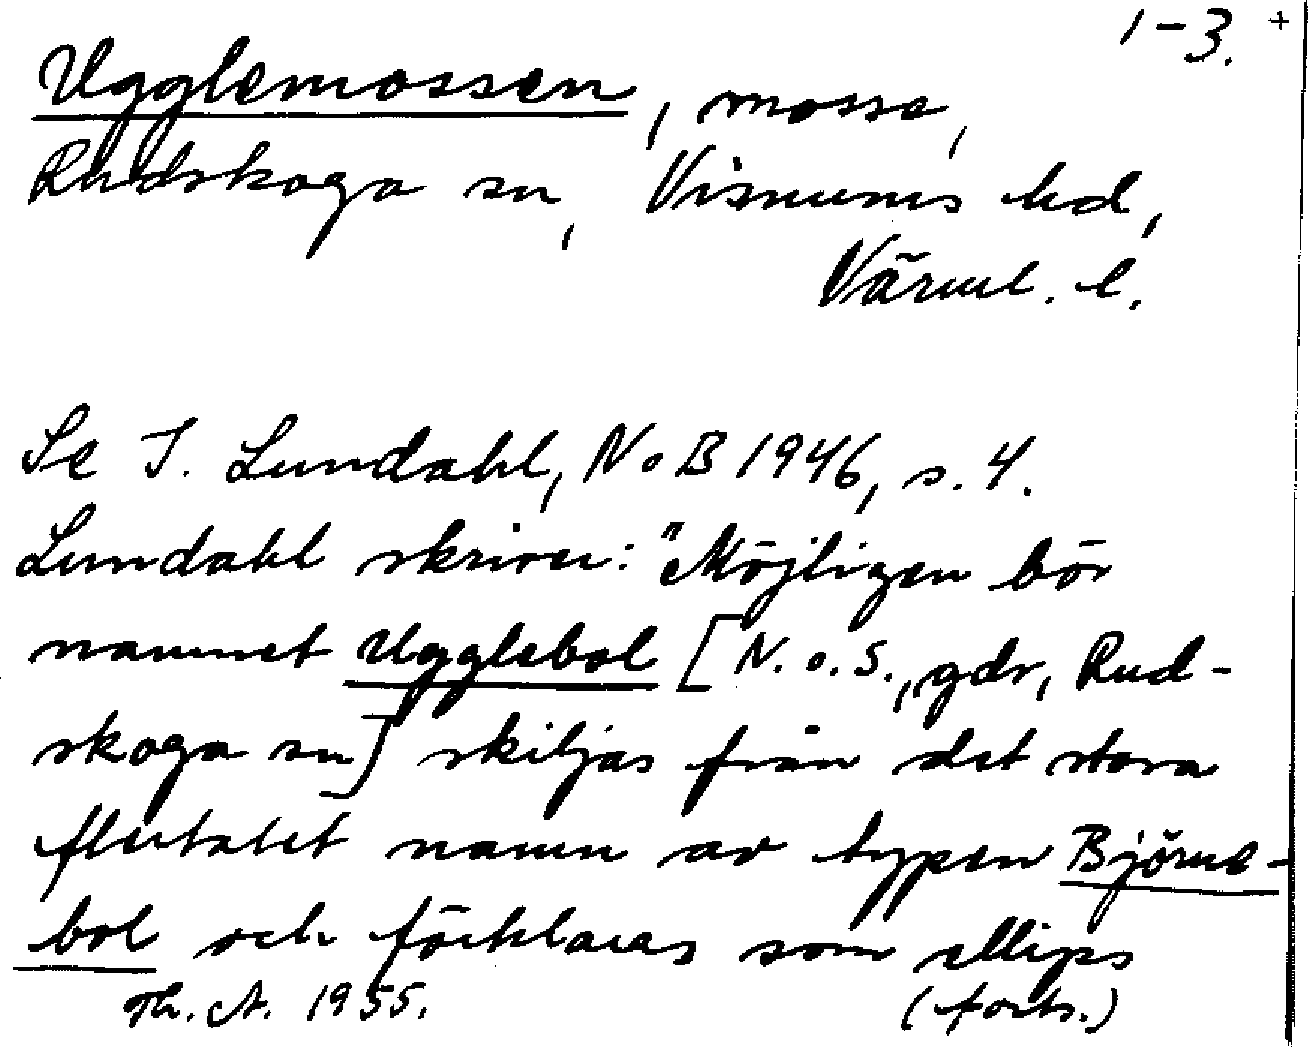 1-3. +
Ugglemossen, mosse,
Rudskoga sn, Visnums hd,
Värml. l.
Se I. Lundahl, NoB 1946, s. 4.
Lundahl skriver: "Möjligen bör
namnet Ugglebol [N. o. S., gdr, Rud-
skoga sn] skiljas från det stora
flertalet namn av typen Björne-
bol och förklaras som ellips
Th. A. 1955.
(forts.)